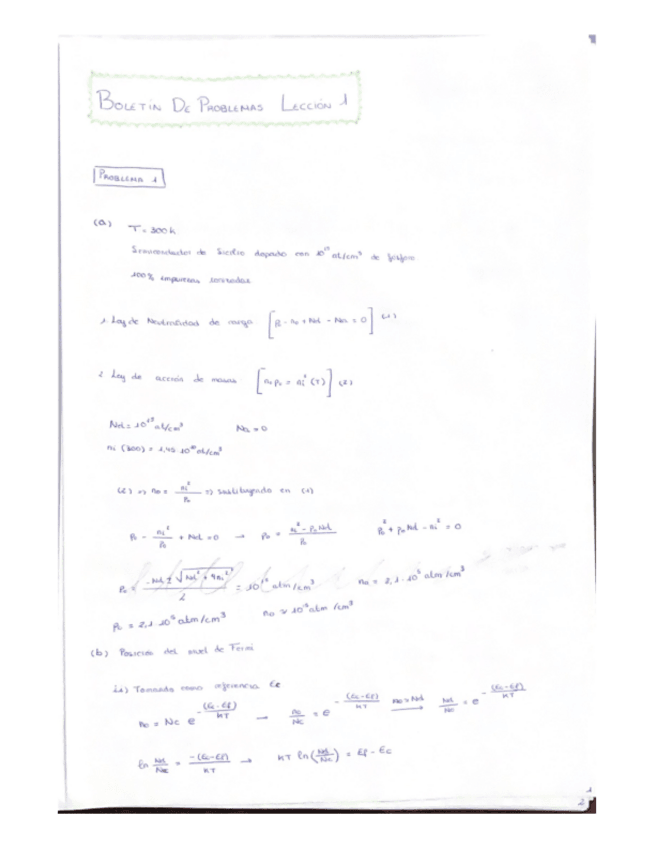 BOLETÍN DE PROBLEMAS LECCIÓN 1
PROBLEMA 1
(a) T = 300 K
Semiconductor de Silicio dopado con at/cm³ de fósforo
100% impurezas ionizadas
1. Ley de Neutralidad de carga [p₀ - n₀ + Nd - Na = 0] (1)
2. Ley de acción de masas [n₀p₀ = ni²(T)] (2)
Nd = 10¹⁵ at/cm³ Na = 0
ni (300) = 1,45·10¹⁰ at/cm³
(2) => n₀ = ni²/p₀ => sustituyendo en (1)
p₀ - ni²/p₀ + Nd = 0 → p₀ = (ni² - p₀Nd)/p₀ p₀² + p₀Nd - ni² = 0
p₀ = (-Nd ± √(Nd² + 4ni²))/2 = atm/cm³ n₀ = 2,1·10⁵ atm/cm³
p₀ = 2,1·10⁵ atm/cm³ n₀ ≈ 10¹⁵ atm/cm³
(b) Posición del nivel de Fermi
Tomando como referencia Ec
n₀ = Nc e^(-(Ec-Ef)/KT) → n₀/Nc = e^(-(Ec-Ef)/KT) n₀≈Nd → Nd/Nc = e^(-(Ec-Ef)/KT)
ln Nd/Nc = -(Ec-Ef)/KT → KT ln(Nd/Nc) = Ef - Ec
1
2